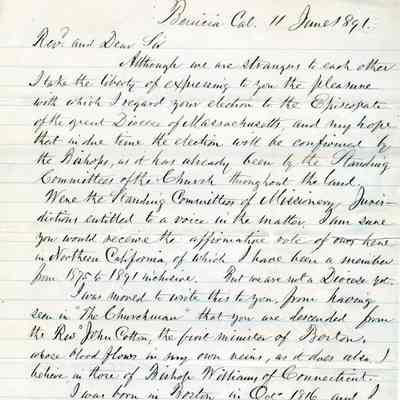 Benicia Cal. 11 June 1891.
Revd. and Dear Sir
Although we are strangers to each other
I take the liberty of expressing to you the pleasure
with which I regard your election to the Episcopate
of the great Diocese of Massachusetts, and my hope
that in due time the election will be confirmed by
the Bishops, as it has already been by the Standing
Committees of the Church throughout the land.
Were the Standing Committees of Missionary Juris-
dictions entitled to a voice in the matter, I am sure
you would receive the affirmative vote of ours here
in Northern California of which I have been a member
from 1875 to 1891 inclusive. But we are not a Diocese yet.
I was moved to write this to you, from having
seen in "The Churchman" that you are descended from
the Revd. John Cotton, the first minister of Boston,
whose blood flows in my own veins, as it does also, I
believe in those of Bishop Williams of Connecticut.
I was born in Boston in Octr. 1816, and I